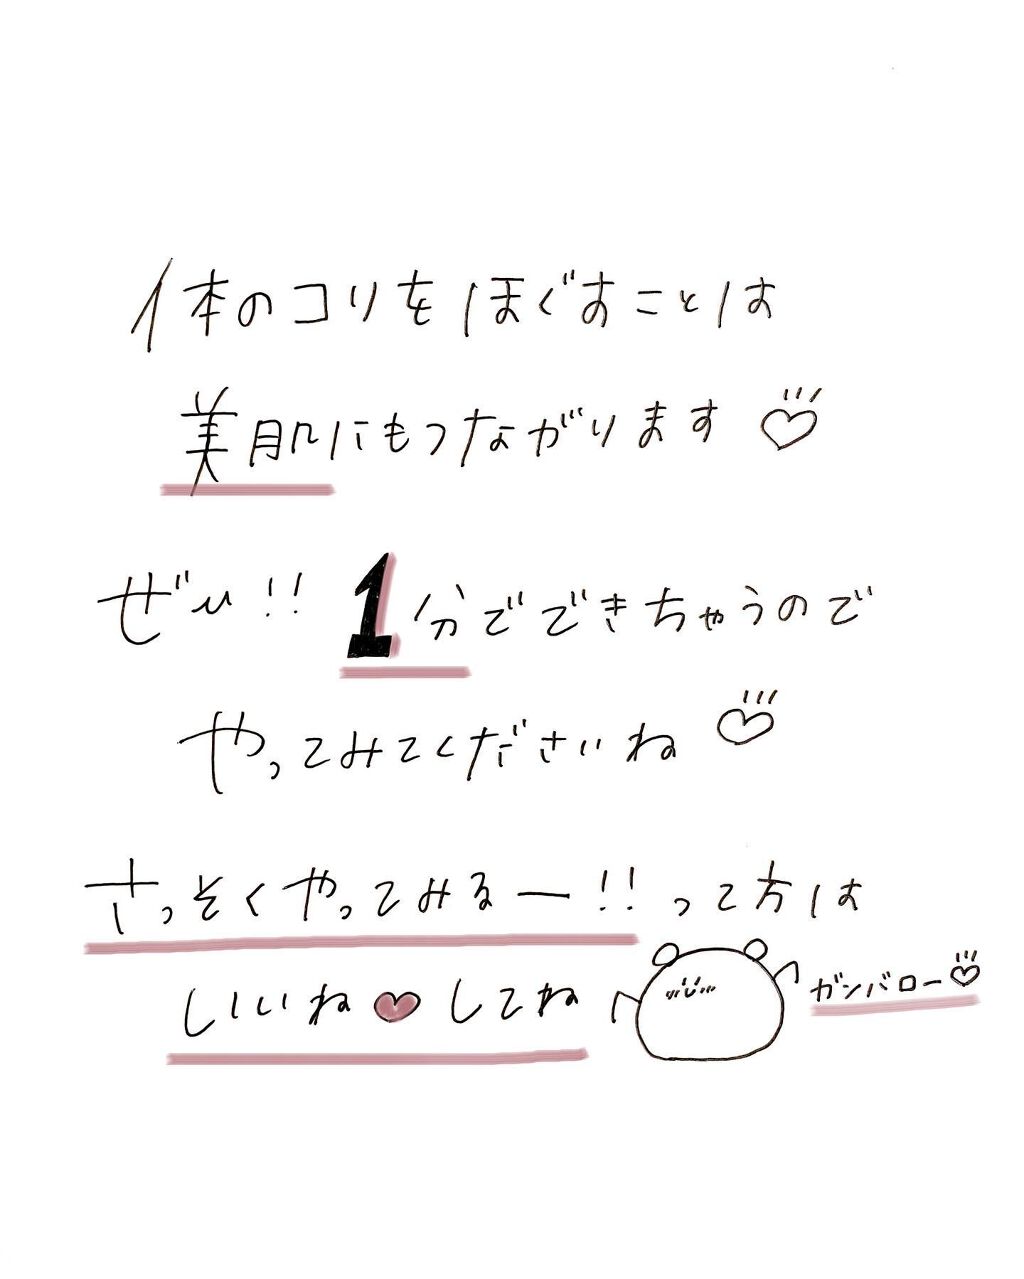 体のコリをほぐすことは
美肌にもつながります♡
ぜひ!! 1分でできちゃうので
やってみてくださいね♡
さっそくやってみるー!!って方は
しいいね♥してね
ガンバロー♡